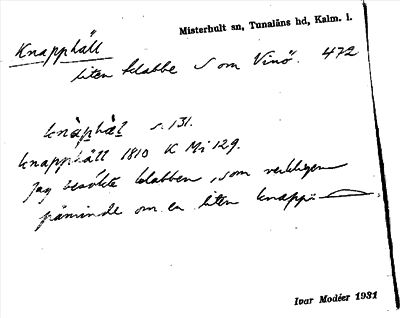 Misterhult sn, Tunaläns hd, Kalm. l.
Knapphäll
liten klabbe S om Vinö. 472
knàphàl s. 131.
knapphäll 1810 K Mi 129.
Jag besökte klabben, som verkligen
påminde om en liten knapp
Ivar Modéer 1931